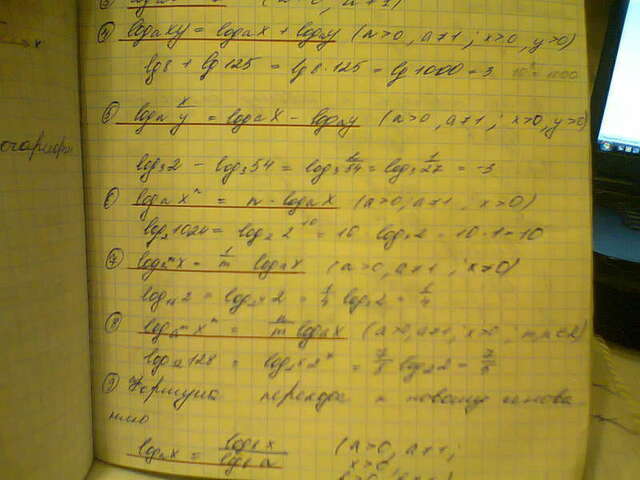 ④ logₐxy = logₐx + logₐy (a>0, a≠1; x>0, y>0)
lg8 + lg125 = lg8·125 = lg1000 = 3 10³ = 1000
⑤ logₐ x/y = logₐx − logₐy (a>0, a≠1; x>0, y>0)
log₃2 − log₃54 = log₃ 2/54 = log₃ 1/27 = −3
⑥ logₐxⁿ = n·logₐx (a>0, a≠1; x>0)
log₂1024 = log₂2¹⁰ = 10 log₂2 = 10·1 = 10
⑦ logₐᵐx = 1/m logₐx (a>0, a≠1; x>0)
log₁₆2 = log₂⁴2 = 1/4 log₂2 = 1/4
⑧ logₐᵐxⁿ = n/m logₐx (a>0, a≠1, x>0; m,n∈Z)
= 7/5 log₂2 = 7/5
⑨ Формула перехода к новому основа
нию
logₐx = log_b x / log_b a (a>0, a≠1;
x>0